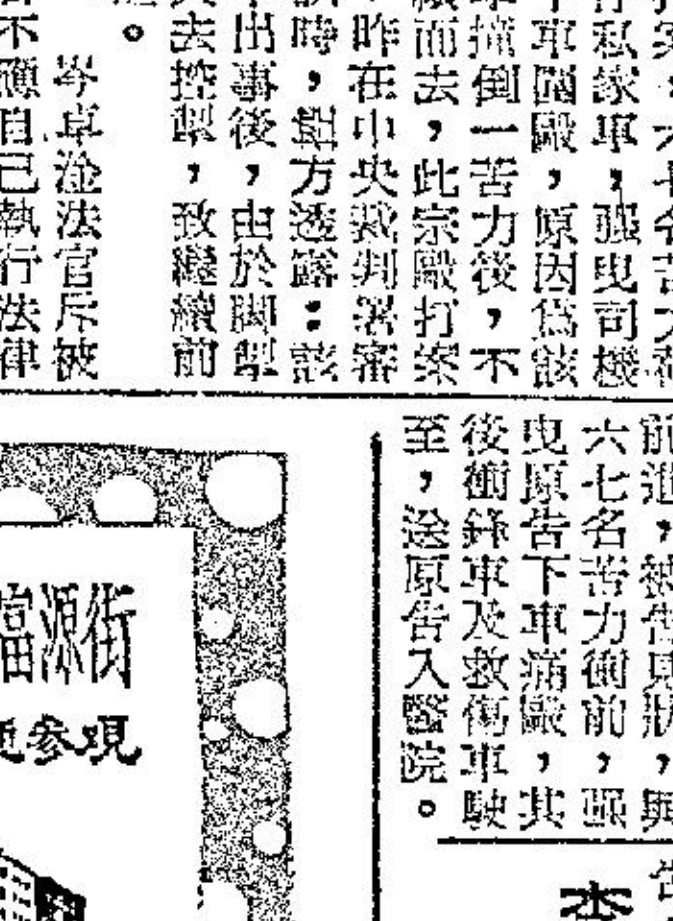 行私家車，強曳司機
車圍毆，原因為該
撞倒一苦力後，不
而去，此宗毆打案
昨在中央裁判署審
時，控方透露：該
出事後，由於脚掣
去控掣，致繼續前
。
岑卓淦法官斥被
不應自己執行法律
前進，被告見狀，與
六七名苦力衝前，強
曳原告下車痛毆，其
後衝鋒車及救傷車駛
至，送原告入醫院。
福源街
參現
李